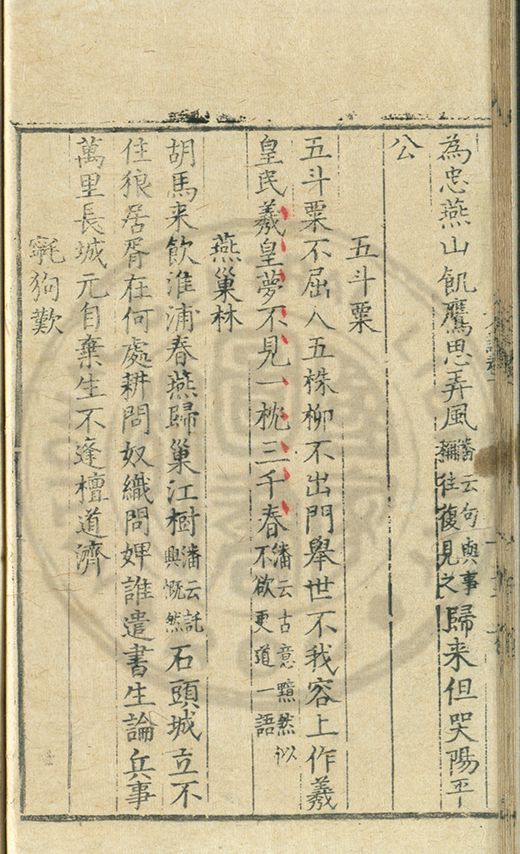 為忠燕山飢鷹思弄風潘云句與事稱往復見之歸来但哭陽平
公
五斗粟
五斗粟不屈人五株柳不出門舉世不我容上作羲
皇民羲皇夢不見一枕三千春潘云古意黯然似不欲更道一語
燕巢林
胡馬来飲淮浦春燕歸巢江樹潘云託興慨然石頭城立不
住狼居胥在何處耕問奴織問婢誰遣書生論兵事
萬里長城元自棄生不逢檀道濟
狗歎